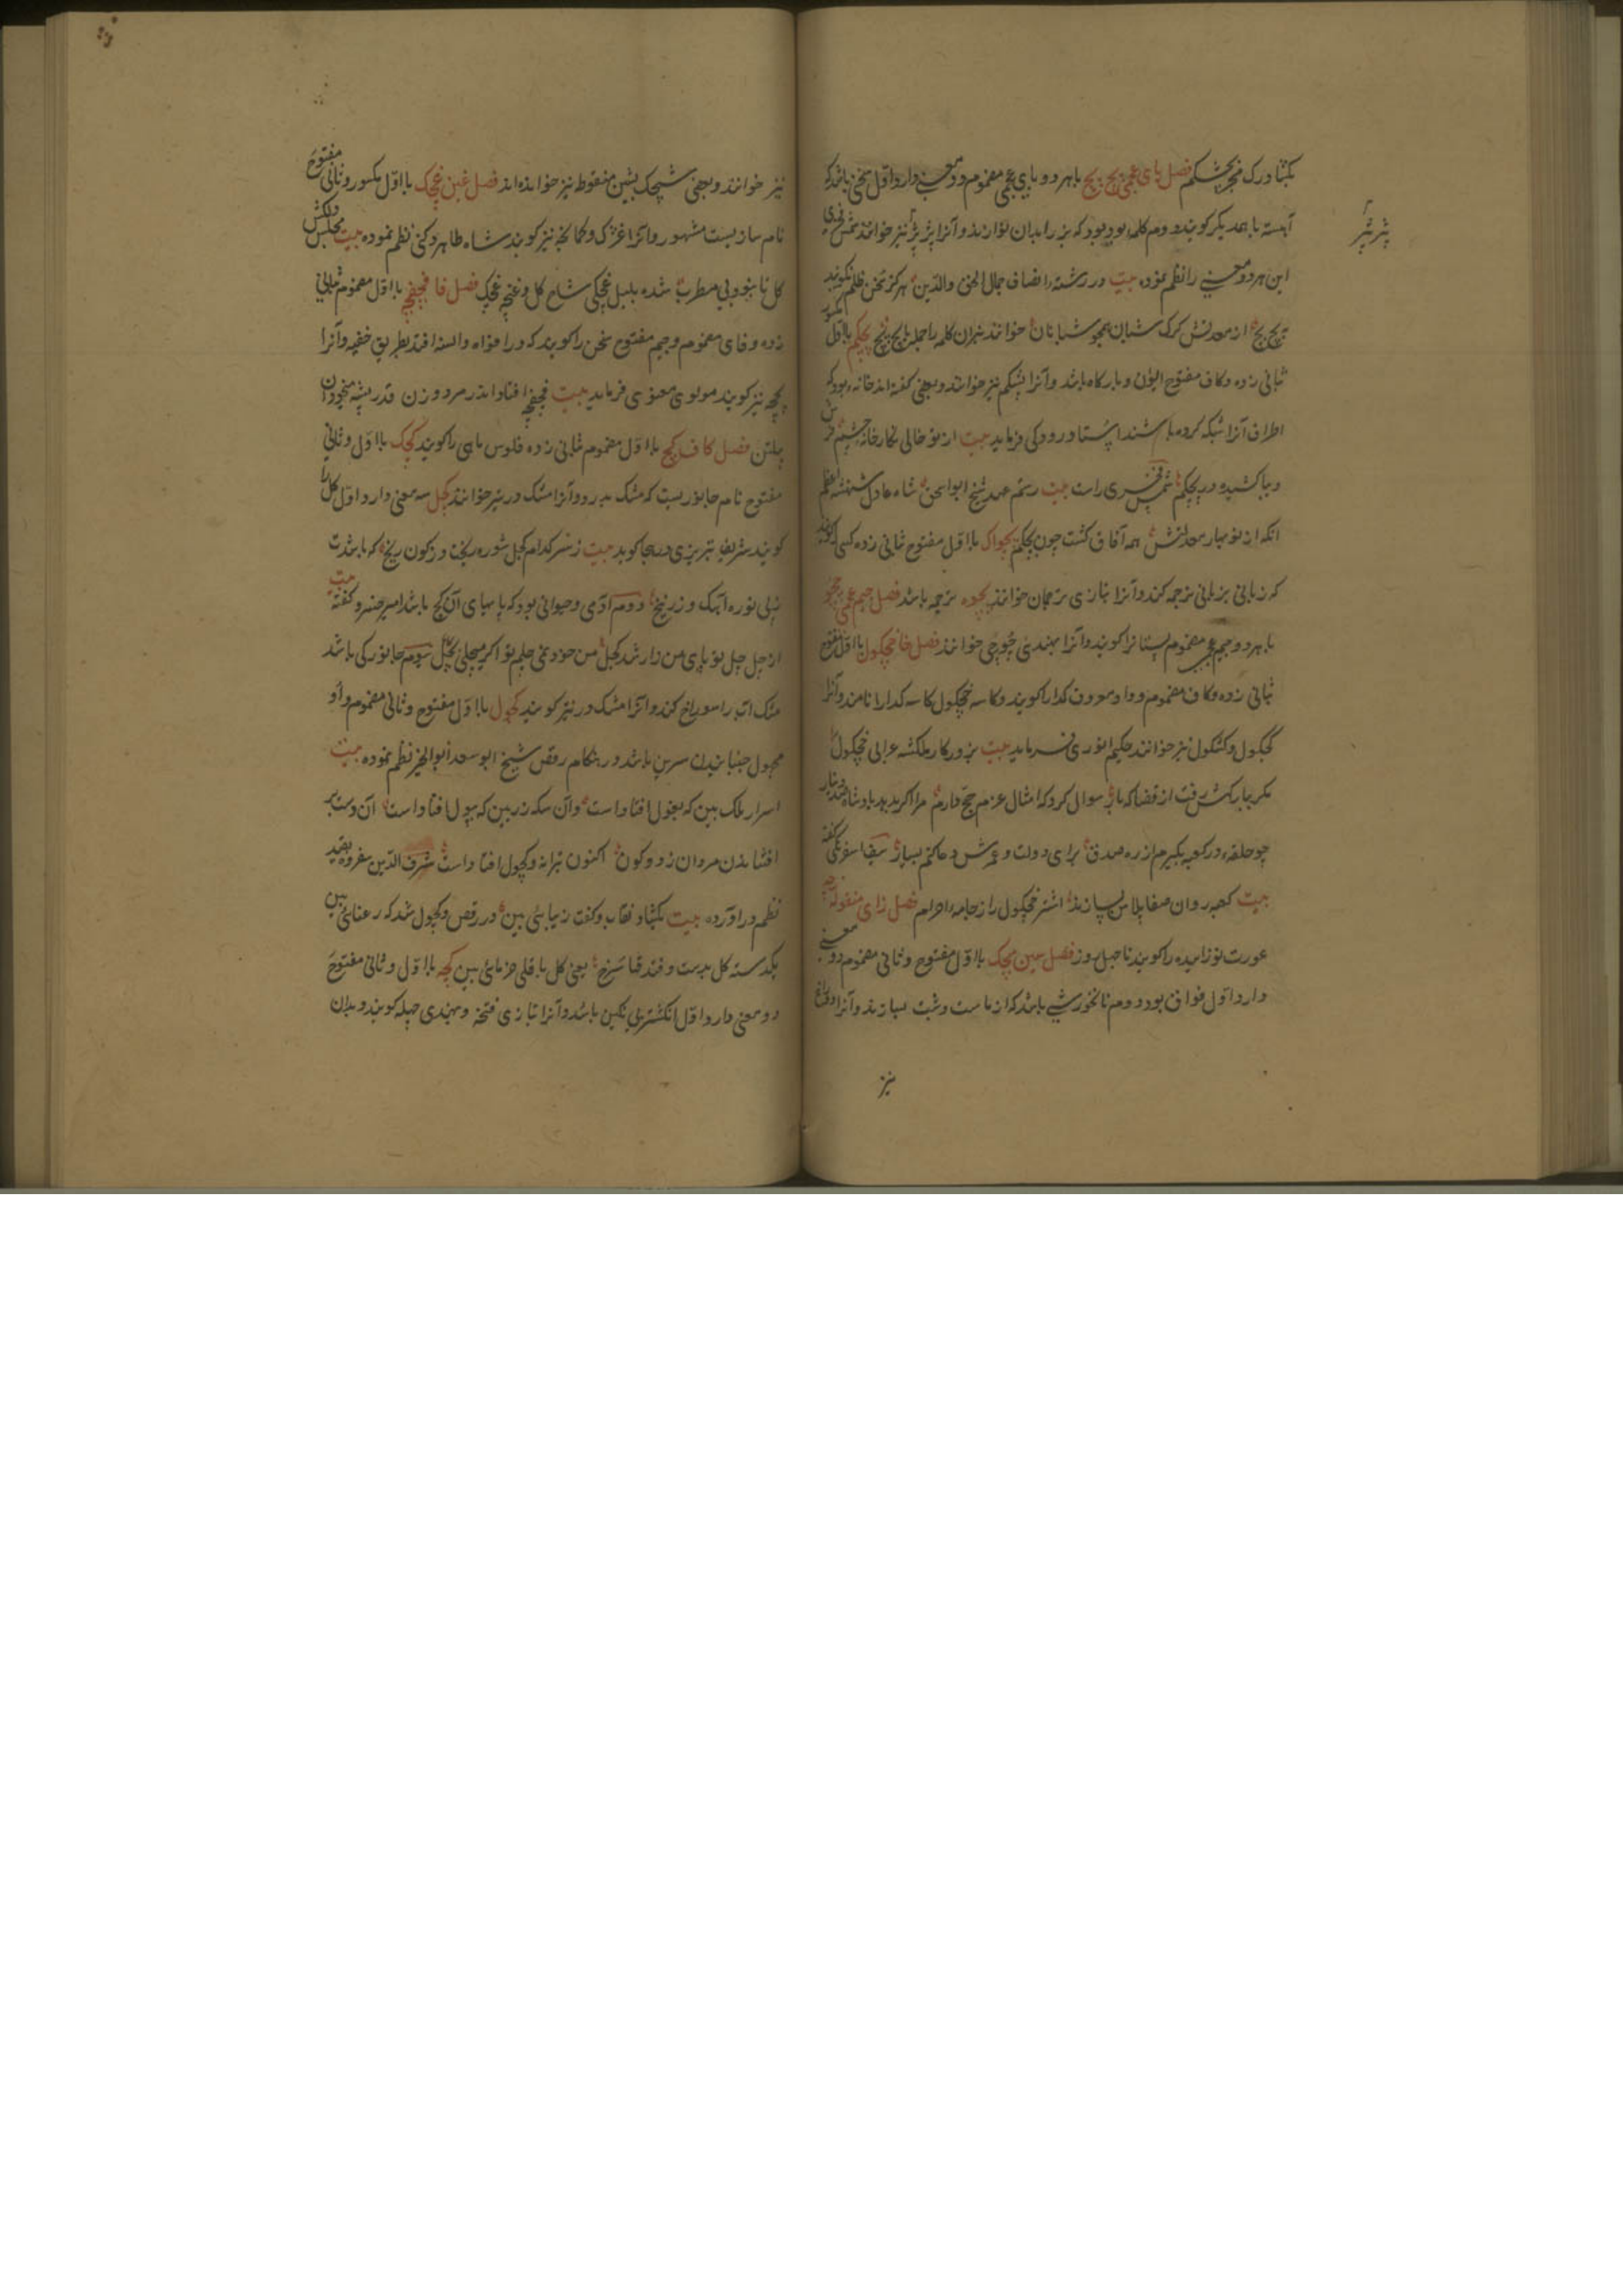 بکشا درک فجر چشکم فصل بای عجمی بچ بچ با هر دو بای عجمی مضموم دو معنی دارد اول سخنی باشد که
آهسته با همدیگر کویند دوم کلمه بود که بز را بدان نوازند و آنرا پژپژ نیز خوانند شمس فخری
این هر دو معنی را نظم نموده بیت در رشته انصاف جمال الحق والدین هرکز سخن ظلم نکویند
بچ بچ از معدلتش کرک شبان همچو شبانان خواند بزان کله را جمله به بچ بچ بچکم با اول مکسور
ثانی زده و کاف مفتوح ایوان و بارکاه باشد و آنرا بشکم نیز خوانند و بعضی کفته اند خانه بود که
اطراف آنرا شبکه کرده باشند استاد رودکی فرماید بیت از تو خالی نکارخانه جم فرش
دیبا کشیده در بچکم شمس فخری راست بیت رستم عهد شیخ ابواسحق شاه عادل شهنشه اعظم
انکه از نوبهار معدلتش همه آفاق کشت چون بچکم بچواک با اول مفتوح ثانی زده کسی را کویند
که زبانی بزبانی ترجمه کند و آنرا بتازی ترجمان خوانند بچوه ترجمه باشد فصل جیم عجمی چچو
با هر دو جیم عجمی مضموم پستانرا کویند و آنرا بهندی چوچی خوانند فصل خا خچکول با اول مفتوح
ثانی زده و کاف مضموم و واو معروف کدا را کویند و کاسه خچکول کاسه کدا را نامند و آنرا
کجکول و کشکول نیز خوانند حکیم انوری فرماید بیت بزورکار ملکشه عرابی خچکول
مکر ببارکهش رفت از قضا که بار سوال کرد که امثال عزم حج دارم مرا اکر بدهد پادشاه صد دینار
چو حلقه در کعبه بکیرم از ره صدق برای دولت و عمرش دعا کنم بسیار سیف اسفرنکی کفته
بیت کعبه روان صفا پلاس بسازند اشتر خچکول را ز جامه احرام فصل زای منقوطه زچه
عورت نوزاییده را کویند تا چهل روز فصل سین سچک با اول مفتوح و ثانی مضموم دو معنی
دارد اول فواق بود و دوم نانخورشی باشد که از ماست و شبت بسازند و آنرا دوغ
نیز
پژپژ
نیز خوانند و بعضی شچک بشین منقوط نیز خوانده اند فصل غین غچک با اول مکسور و ثانی مفتوح
نام سازیست مشهور و آنرا غژک و کمانچه نیز کویند شاه طاهر دکنی نظم نموده بیت مجلس دلکش
کل تا بنود بی مطرب شده بلبل غچکی شاخ کل و غنچه غچک فصل فا فچفچه با اول مضموم ثانی
زده و فای مضموم و جیم مفتوح سخن را کویند که در افواه و السنه افتد بطریق خفیه و آنرا
بچچه نیز کویند مولوی معنوی فرماید بیت فچفچه افتاد اندر مرد و زن قدر پشه میخورد آن
پیلتن فصل کاف کچ با اول مضموم ثانی زده فلوس ماهی را کویند کچک با اول و ثانی
مفتوح نام جانوریست که مشک بدرد و آنرا مشک در نیز خوانند کچل سه معنی دارد اول کل را
کویند شریف تبریزی در هجا کوید بیت ز شر کدام کچل شوره ریخت و ز کون ریخ که با شدت
پی نوره آهک و زرنیخ دوم آدمی و حیوانی بود که پاهای آن کچ باشد امیر خسرو کفته بیت
از چل چل تو پای من زار شد کچل من خود نمی چلم تو اکر میچلی بچل سوم جانورکی باشد
مشک آب را سوراخ کند و آنرا مشک در نیز کویند کچول با اول مفتوح و ثانی مضموم و واو
مجهول جنبانیدن سرین باشد در هنکام رقص شیخ ابوسعید ابوالخیر نظم نموده بیت
اسرار ملک بین که بغول افتادست وآن سکه زر بین که بپول افتادست آن دست بر
افشاندن مردان ز دو کون اکنون بترانه و کچول افتادست شرف الدین شفروه بقید
نظم درآورده بیت بکشاد نقاب و کفت زیبائی بین در رقص و کچول شد که رعنائی بین
یکدسته کل بدست و قند قاسرخ یعنی کل با قلی خرمائی بین کچه با اول و ثانی مفتوح
دو معنی دارد اول انکشتری بی نکین باشد و آنرا بتازی فتخه و بهندی چهله کویند و بدان